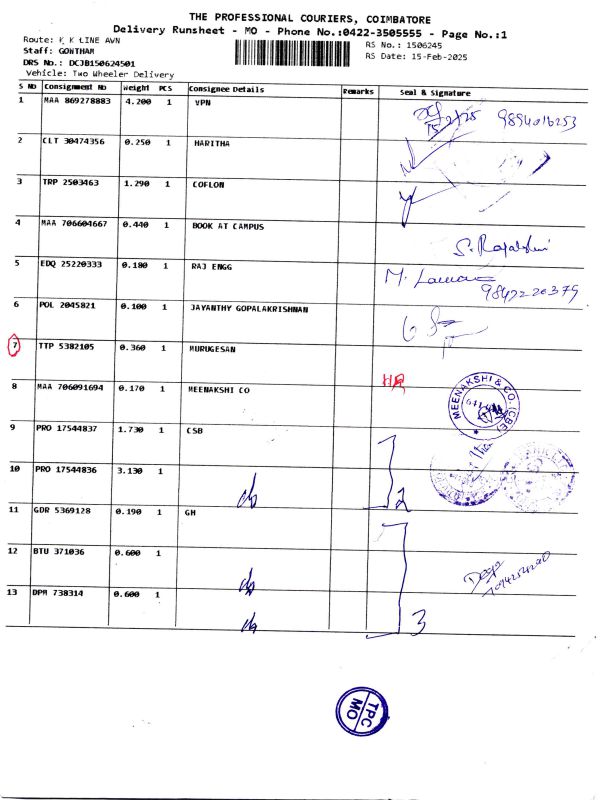 THE PROFESSIONAL COURIERS, COIMBATORE
Delivery Runsheet - MO - Phone No.:0422-3505555 - Page No.:1
Route: K K LINE AVN
Staff: GOWTHAM
DRS No.: DCJB150624501
Vehicle: Two Wheeler Delivery
RS No.: 1506245
RS Date: 15-Feb-2025
S No Consignment No Weight PCS Consignee Details Remarks Seal & Signature
1 MAA 869278883 4.200 1 VPN
15/2/25 9894016253
2 CLT 30474356 0.250 1 HARITHA
3 TRP 2503463 1.290 1 COFLON
4 MAA 706604667 0.440 1 BOOK AT CAMPUS
5 EDQ 25220333 0.180 1 RAJ ENGG
9842220379
6 POL 2045821 0.100 1 JAYANTHY GOPALAKRISHNAN
7 TTP 5382105 0.360 1 MURUGESAN
8 MAA 706091694 0.170 1 MEENAKSHI CO
MEENAKSHI & CO. (CBE)
9 PRO 17544837 1.730 1 CSB
10 PRO 17544836 3.130 1
2
11 GDR 5369128 0.190 1 GH
12 BTU 371036 0.600 1
13 DPM 738314 0.600 1
3
TPC
MO